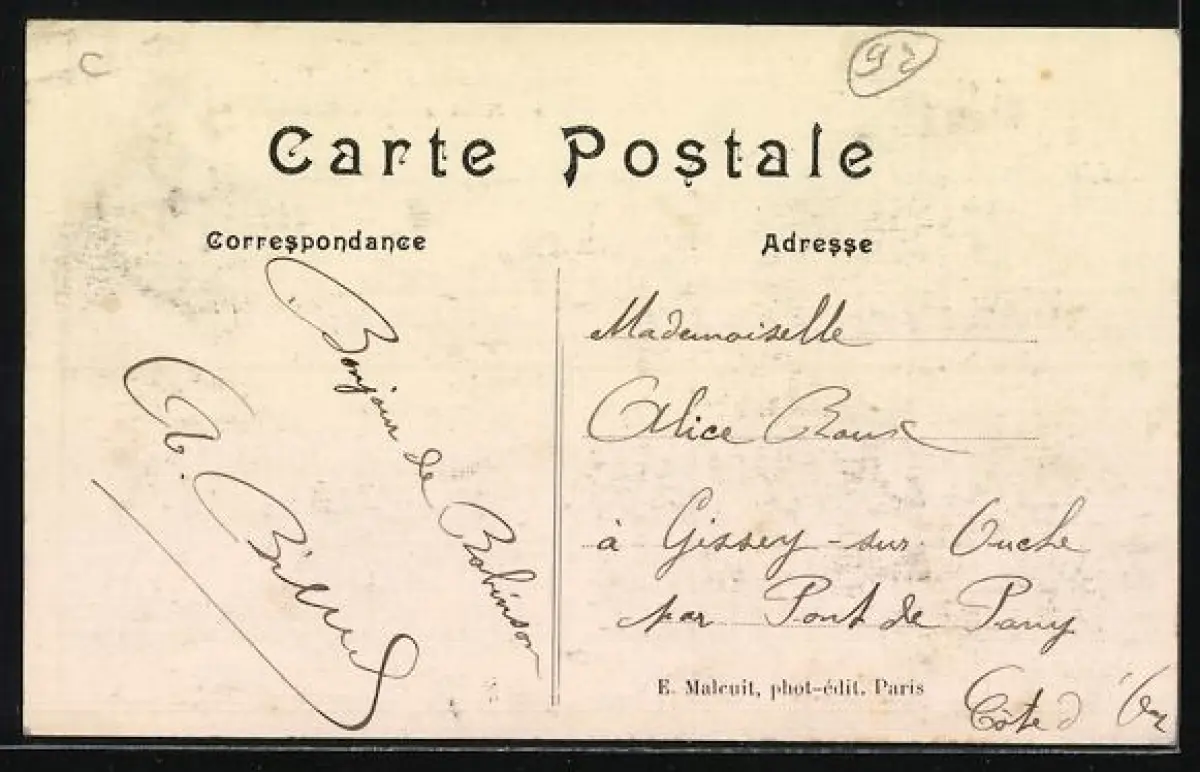 C
92
Carte Postale
Correspondance
Adresse
Bonjour de Robinson
Mademoiselle
Alice Roux
à Gissey-sur-Ouche
par Pont de Pany
Côte d'Or
E. Malcuit, phot-édit. Paris